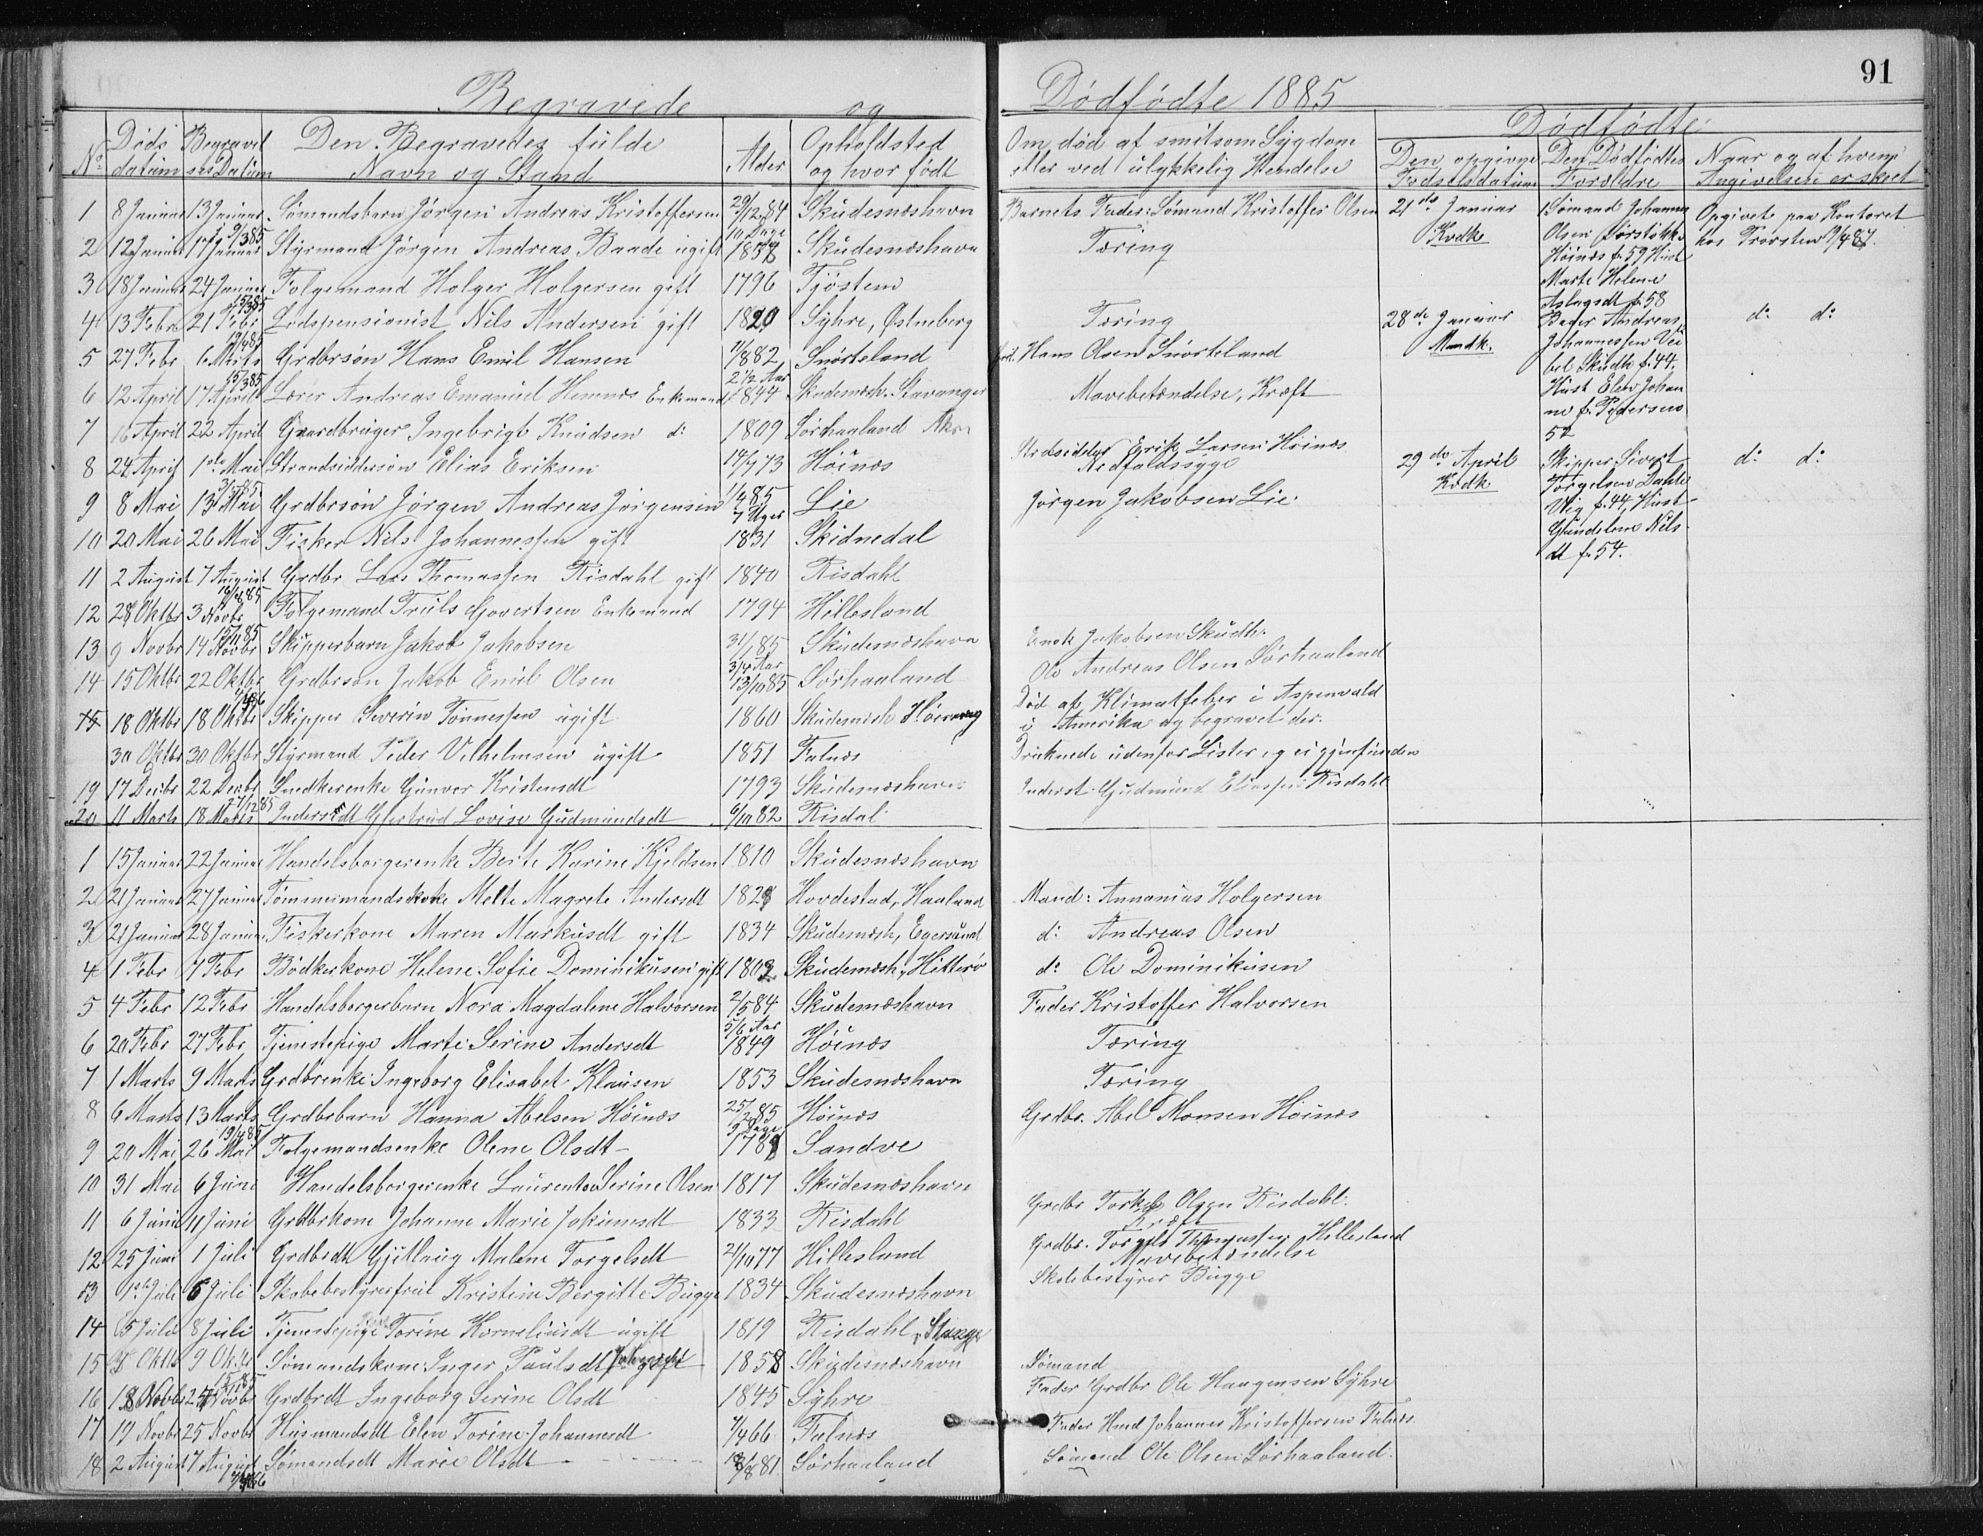 91
Begravede og Dødfødte 1885
No Døds datum Begravelses Datum Den Begravedes fulde Navn og Stand Alder Opholdsted og hvor født Om død af smitsom Sygdom eller ved ulykkelig Hendelse
Dødfødte
Den opgivne Fødselsdatum Den Dødfødtes Forældre Naar og af hvem Angivelsen er skeet
1 8 Januar 13 Januar Sømandsbarn Jørgen Andreas Kristoffersen 29/12 84 10 Dage Skudesnæshavn Barnets Fader: Sømand Kristoffer Olsen
2 12 Januar 17 Januar Styrmand Jørgen Andreas Baade ugift 1857 Skudesnæshavn Tæring
3 18 Januar 24 Januar Folgemand Holger Holgersen gift 1796 Tjøstem
4 13 Febr 21 Febr Lodspensionist Nils Andersen gift 1820 Syhre, Østneberg Tæring
5 27 Febr 6 Marts Grdbrsøn Hans Emil Hansen 11/8 82 2 1/2 Aar Snørteland Hans Olsen Snørteland
6 12 April 17 April Lærer Andreas Emanuel Hemnæs Enkemand 1844 Skudesnæsh. Stavanger Mavebetændelse, Kræft
7 16 April 22 April Gaardbruger Ingebrigt Knudsen do 1809 Sørhaaland
8 24 April 1ste Mai Strandsiddersøn Elias Eriksen 14/7 73 Høinæs Strdsidder Erik Larsen Høinæs Nedfaldssyge
9 8 Mai 13 Mai Grdbrsøn Jørgen Andreas Jørgensen 1/4 85 7 Uger Lie Jørgen Jakobsen Lie
10 20 Mai 26 Mai Fisker Nils Johannessen gift 1831 Skidnedal
11 2 August 7 August Grdbr Lars Thomassen Risdahl gift 1840 Risdahl
12 28 Oktbr 3 Novbr Folgemand Truls Govertsen Enkemand 1794 Hillesland
13 9 Novbr 14 Novbr Skipperbarn Jakob Jakobsen 31/1 85 3/4 Aar Skudesnæshavn Jakobsen Skudh.
14 15 Oktbr 22 Oktbr Grdbrsøn Jakob Emil Olsen 13/10 85 Sørhaaland Ole Andreas Olsen Sørhaaland
15 18 Oktbr 18 Oktbr Skipper Severin Tønnessen ugift 1860 Skudesnæsh Død af Klimatfeber i Aspenvald i Amerika og begravet der.
30 Oktbr 30 Oktbr Styrmand Peder Vilhelmsen ugift 1851 Falnæs Druknede udenfor Lister og ei gjenfunden
19 17 Decbr 22 Decbr Snedkerenke Gunvor Kristensdt 1793 Skudesnæshavn
20 11 Marts 18 Marts Inderstdt Gjertrud Lovise Gudmundsdt 6/10 82 Risdal Inderst Gudmund Eliassen Risdahl
21de Januar Kvdk Sømand Johannes Olsen Høinæs f. 59 Hust Marte Helene Aslagsdt f. 58 Opgivet paa Kontoret hos Provsten
28de Januar Mandk. Bager Andreas Johannessen Skudh f. 44. Hust Elen Johanne f. Pedersen 52 do do
29de April Kvdk. Skipper Sivert Torgelsen Dahle Vig f. 44, Hust Gundelene Nilsdt f. 54. do do
1 15 Januar 22 Januar Handelsborgerenke Berte Karine Kjeldsen 1810 Skudesnæshavn
2 21 Januar 27 Januar Tømmermandskone Mette Magrete Andersdt 1828 Hovdestad, Haaland Mand: Annanias Holgersen
3 21 Januar 28 Januar Fiskerkone Maren Markusdt gift 1834 Skudesnæsh, Egersund do Andreas Olsen
4 1 Febr 7 Febr Bødkerkone Helene Sofie Dominikusen gift 1802 Skudesnæsh, Hitterø do Ole Dominikusen
5 4 Febr 12 Febr Handelsborgerbarn Nora Magdalene Halvorsen 2/5 84 5/6 Aar Skudesnæshavn Fader Kristoffer Halvorsen
6 20 Febr 27 Febr Tjenestepige Marte Serine Andersdt 1849 Høinæs Tæring
7 1 Marts 9 Marts Grdbrenke Ingeborg Elisabet Klausen 1853 Skudesnæshavn Tæring
8 6 Marts 13 Marts Grdbrbarn Hanna Abelsen Høinæs 25/2 85 9 Dage Høinæs Grdbr. Abel Monsen Høinæs
9 20 Mai 26 Mai Folgemandsenke Olene Olsdt 1788 Sandve
10 31 Mai 6 Juni Handelsborgerenke Laurentse Serine Olsen 1817 Skudesnæshavn
11 6 Juni 11 Juni Grdbrkone Johanne Marie Jokumsdt 1833 Risdahl Grdbr Torkel Olsen Risdahl. Kræft
12 25 Juni 1 Juli Grdbrdt Gjitlaug Malene Torgelsdt 2/10 77 Hillesland Grdbr. Torgils Thomassen Hillesland Mavebetændelse
13 1ste Juli 6 Juli Skolebestyrerfrue Kristine Bergitte Bugge 1834 Skudesnæshavn Skolebestyrer Bugge
14 5 Juli 8 Juli Tjenestepige Torine Korneliusdt ugift 1819 Risdahl, Stange
15 8 Oktb 9 Oktb Sømandskone Inger Paulsdt 1858 Skudesnæshavn Sømand
16 18 Novbr 24 Novbr Grdbrdt Ingeborg Serine Olsdt 1845 Syhre Fader Grdbr Ole Haagensen Syhre
17 19 Novbr 25 Novbr Husmandsdt Elen Torine Johannesdt 7/4 66 Falnæs Fader Hmd Johannes Kristoffersen Falnæs.
18 2 August 7 August Sømandsdt Marie Olsdt 18/8 81 Sørhaaland Sømand Ole Olsen Sørhaaland.